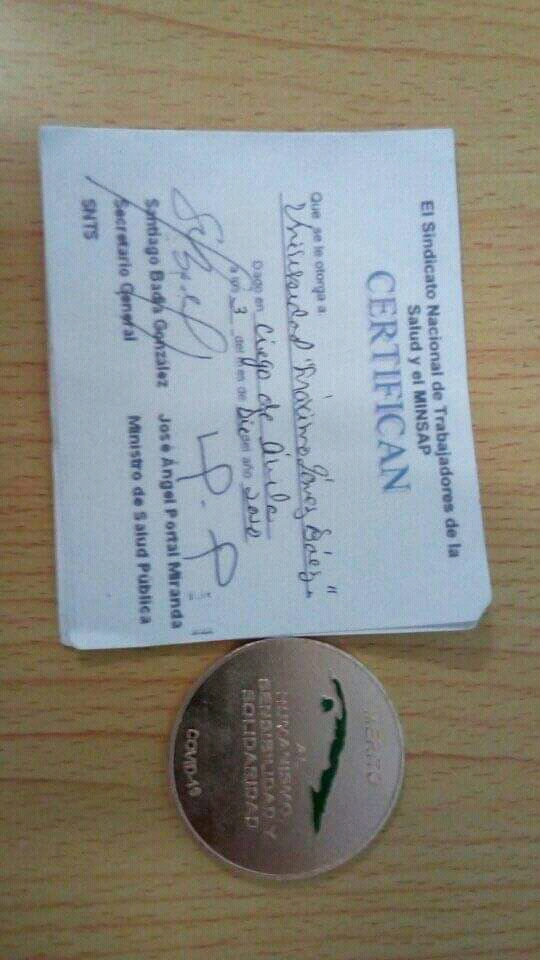 El Sindicato Nacional de Trabajadores de la
Salud y el MINSAP
CERTIFICAN
Que se le otorga a:
Universidad "Máximo Gómez Báez"
Dado en Ciego de Ávila
a los 3 del mes de Dic del año 2020
Santiago Badía González
Secretario General
SNTS
José Ángel Portal Miranda
Ministro de Salud Pública
MÉRITO
AL
HUMANISMO,
SENSIBILIDAD Y
SOLIDARIDAD
COVID-19